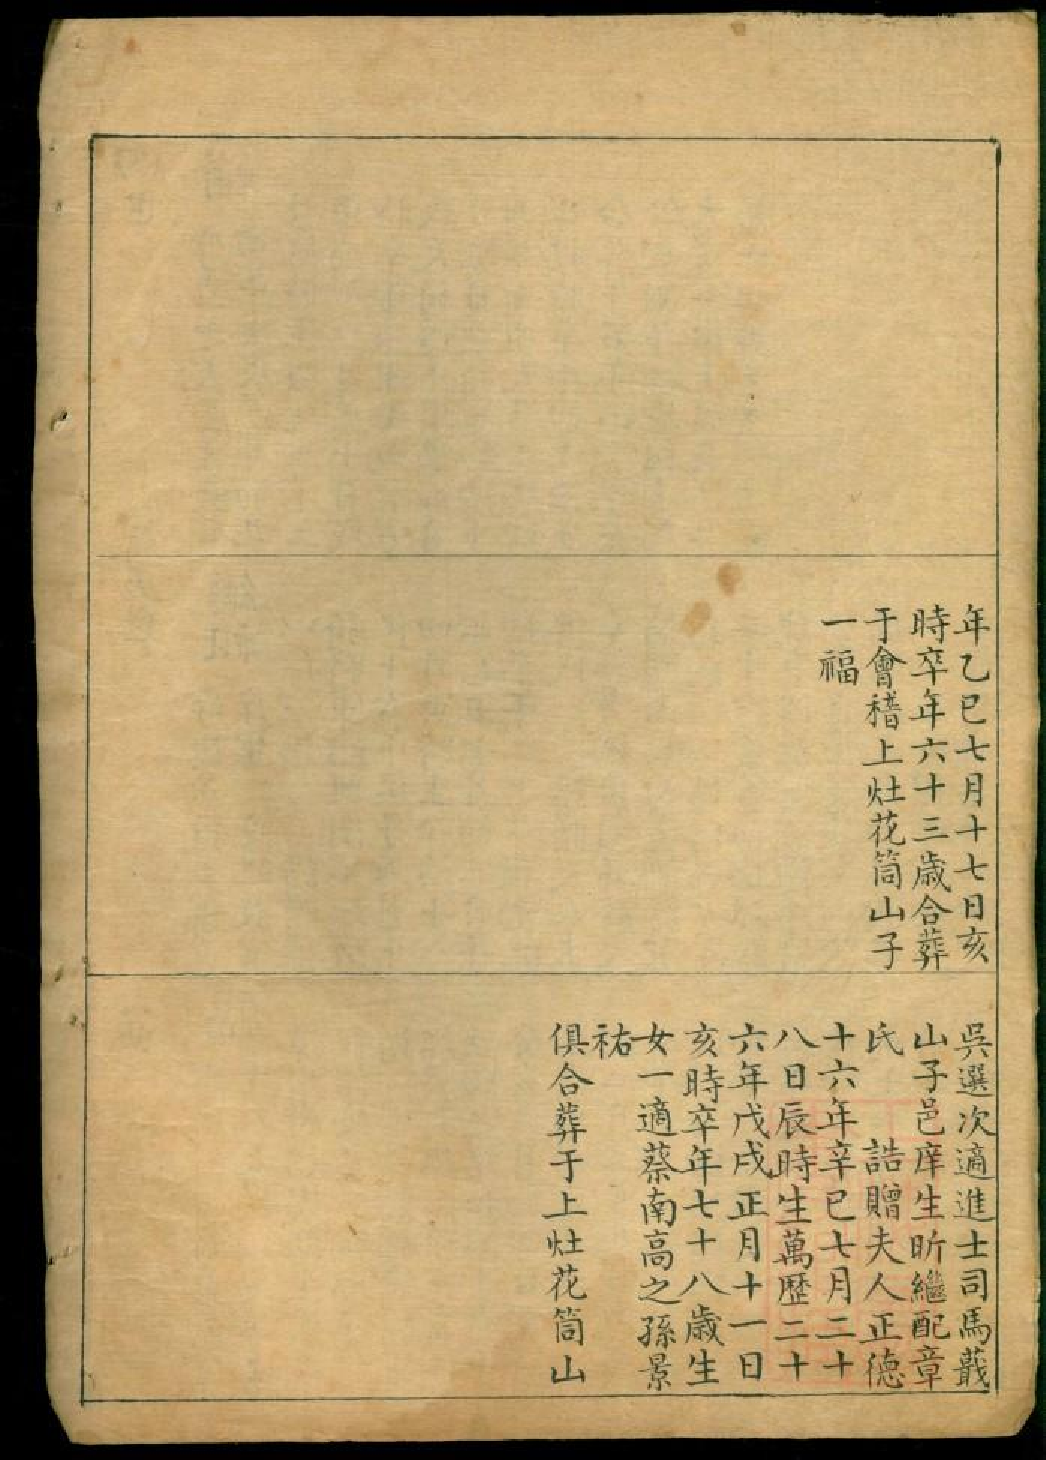 年乙巳七月十七日亥
時卒年六十三歲合葬
于會稽上灶花筒山子
一福
吳選次適進士司馬蕺
山子邑庠生昕繼配章
氏　誥贈夫人正德
十六年辛巳七月二十
八日辰時生萬歷二十
六年戊戌正月十一日
亥時卒年七十八歲生
女一適蔡南高之孫景
祐
俱合葬于上灶花筒山